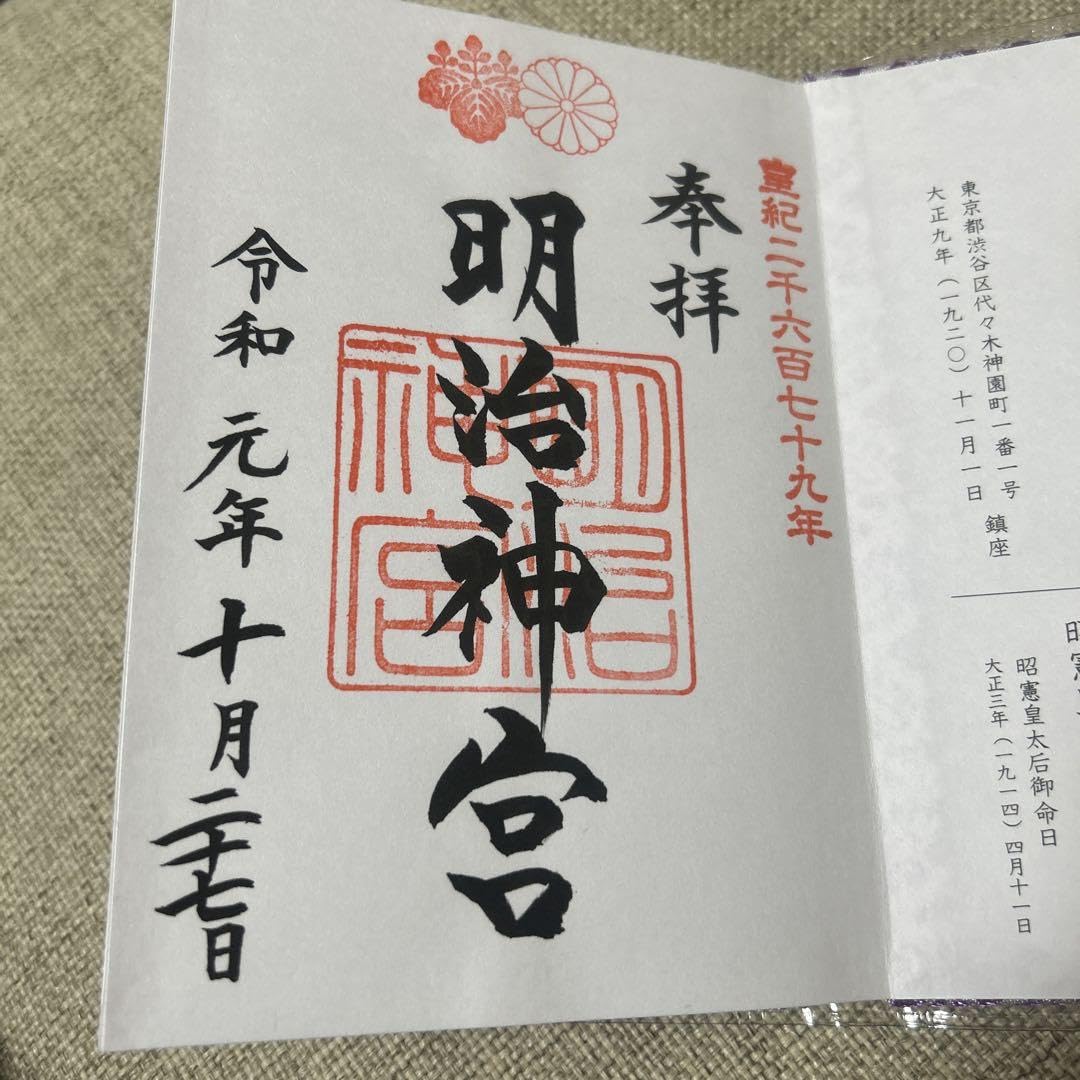 東京都渋谷区代々木神園町一番一号
大正九年（一九二〇）十一月一日 鎮座
昭憲皇太后御命日
大正三年（一九一四）四月十一日
皇紀二千六百七十九年
奉拝
明治神宮
明治神宮
令和元年十月二十七日